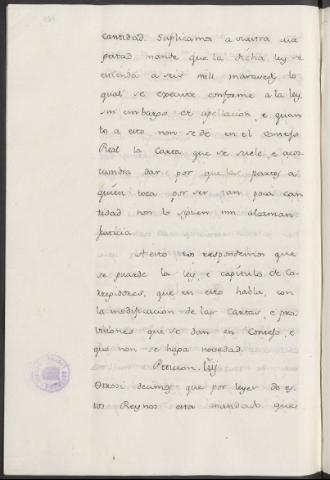 cantidad. Suplicamos a vuestra ma
gestad mande que la dicha ley se
entienda a seis mill maravedis lo
qual se execute conforme a la ley,
sin embargo de apelacion, e quan
to a esto non se dé en el Consejo
Real la Carta que se suele, e acos
tumbra dar, por que las partes a
quien toca por ser tan poca can
tidad non lo siguen nin alcanzan
justicia.
A esto vos respondemos que
se guarde la ley, e capitulo de Co-
rregidores, que en esto habla, con
la modificacion de las Cartas, e pro
visiones que se dan en Consejo, e
que non se haga novedad.
Peticion
Otrosi decimos que por leyes de es
tos Reynos esta mandado que